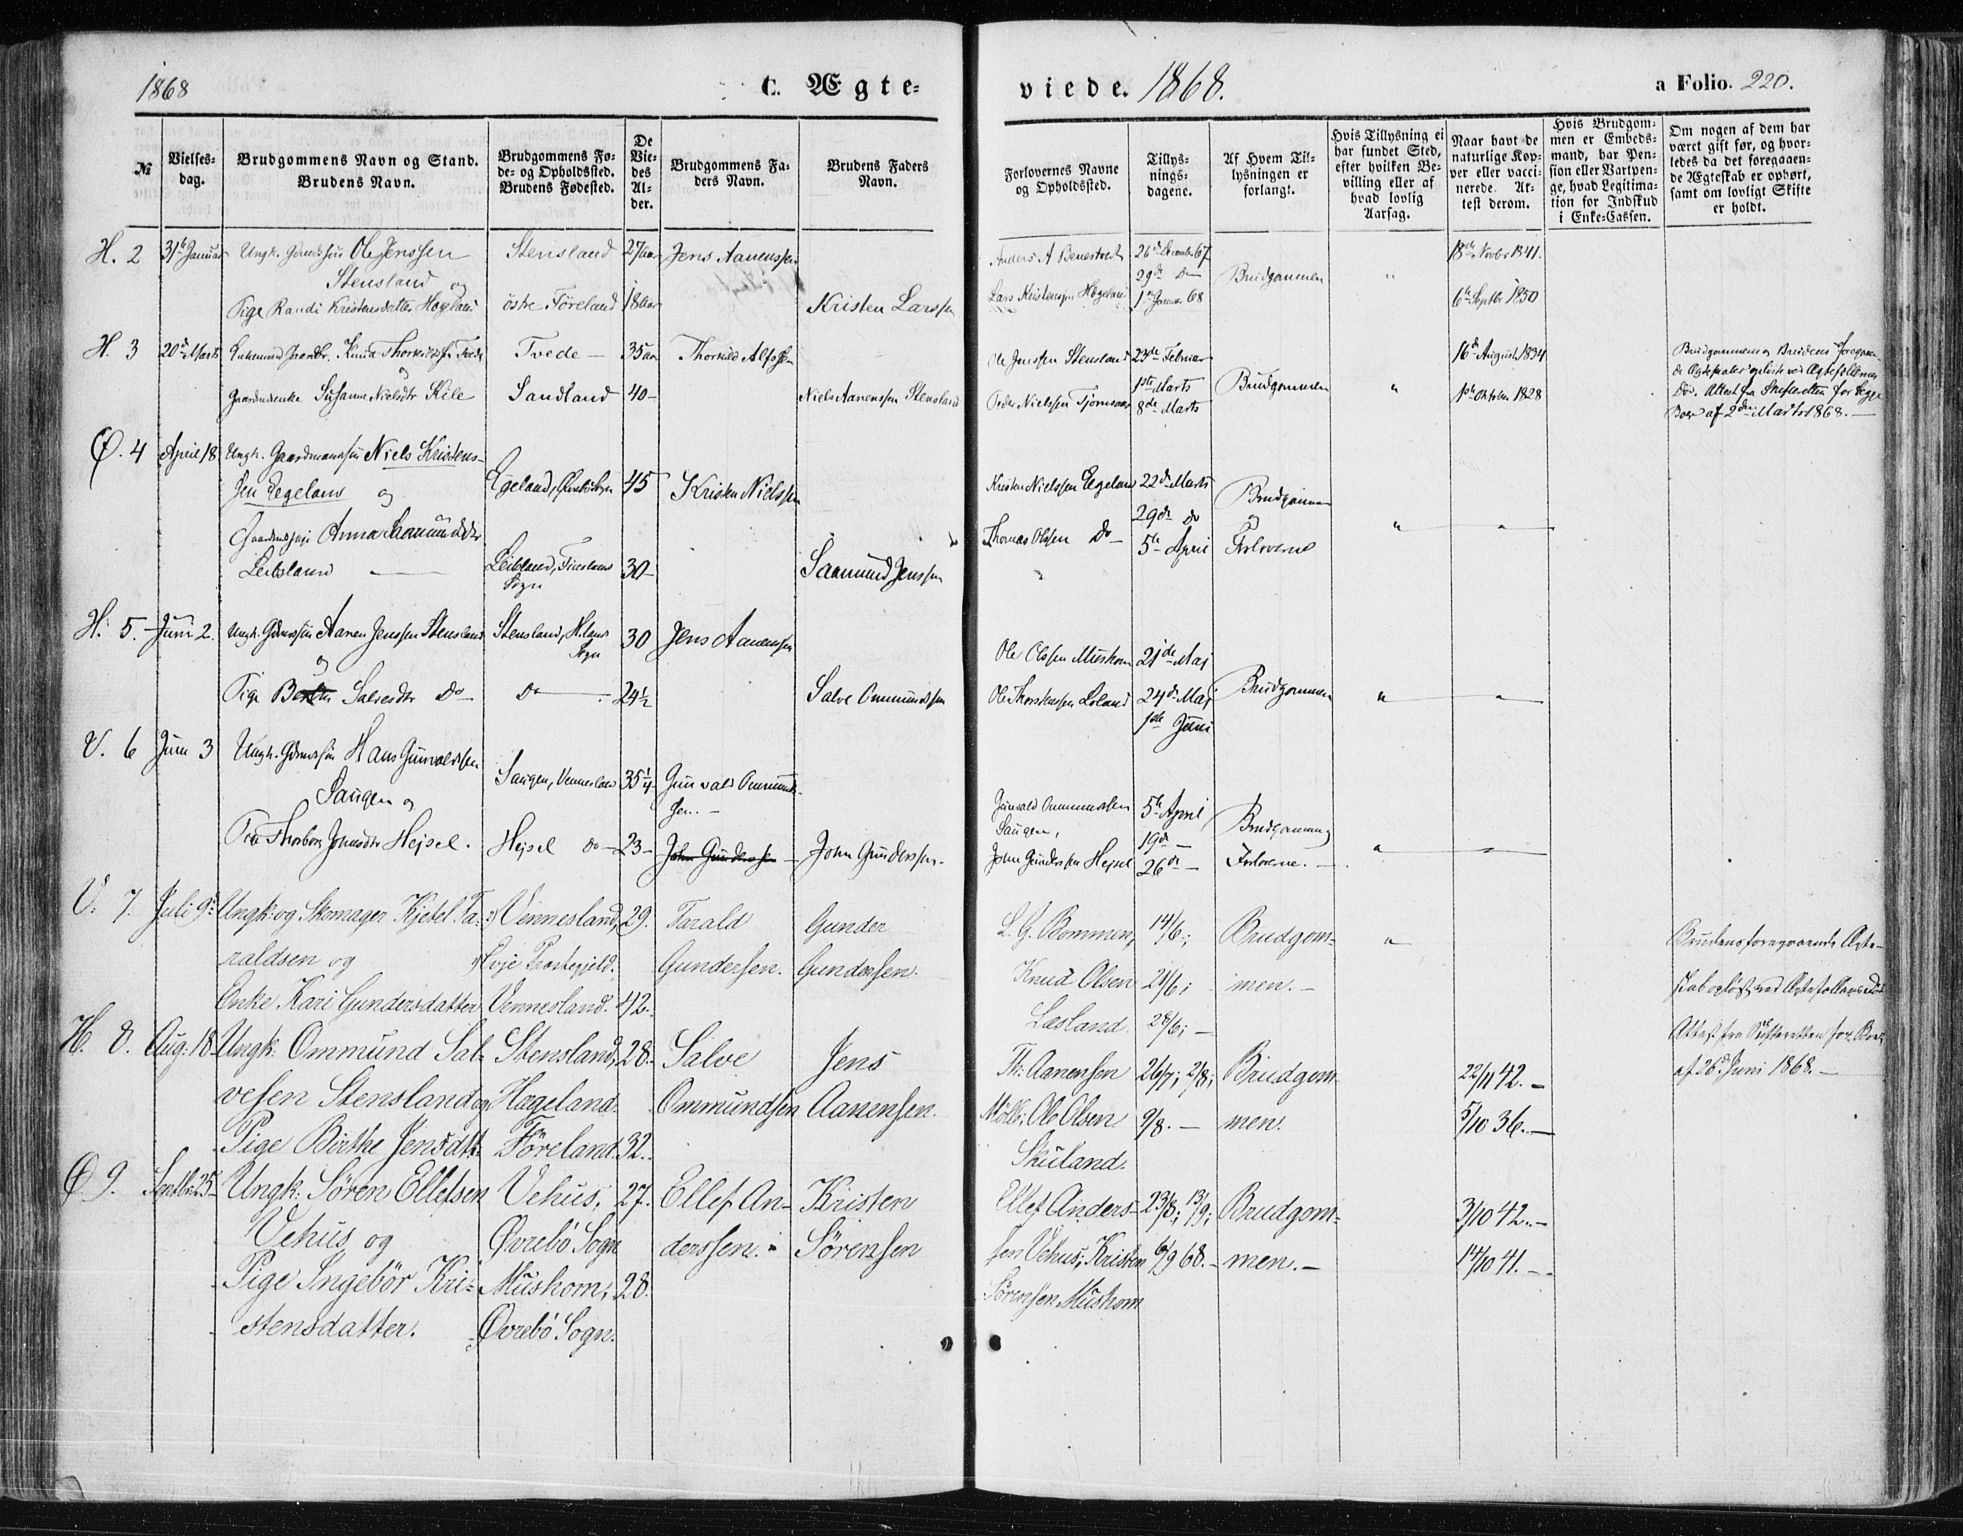 1868
C. Ægte-
viede. 1868.
a Folio. 220.
№
Vielses-
dag.
Brudgommens Navn og Stand.
Brudens Navn.
Brudgommens Fø-
de- og Opholdsted.
Brudens Fødested.
De
Vie-
des
Al-
der.
Brudgommens Fa-
ders Navn.
Brudens Faders
Navn.
Forlovernes Navne
og Opholdsted.
Tillys-
nings-
dagene.
Af Hvem Til-
lysningen er
forlangt.
Hvis Tillysning ei
har fundet Sted,
efter hvilken Be-
villing eller af
hvad lovlig
Aarsag.
Naar havt de
naturlige Kop-
per eller vacci-
nerede. At-
test derom.
Hvis Brudgom-
men er Embeds-
mand, har Pen-
sion eller Vartpen-
ge, hvad Legitima-
tion for Indskud
i Enke-Cassen.
Om nogen af dem har
været gift før, og hvor-
ledes da det foregaaen-
de Ægteskab er ophørt,
samt om lovligt Skifte
er holdt.
H. 2
31te Januar
Ungk. Gmdssøn Ole Jenssen
Stensland og
Pige Randi Kristensdatter Hageland
Stensland
østre Føreland
27 aar
18 aar
Jens Aanenssen
Kristen Larssen
Anders A Benestvedt
Lars Kristenssen Hageland
26de December 67
29de Do
1ste Januar 68
Brudgommen
"
18de Novbr 1841.
6te Septbr 1850
H. 3
20de Marts
Enkemand Knud Thorkildssen Tvede
og
Gaardmdenke Susanne Nielsdtr Kile
Tvede —
Sandland
35 aar
40 –
Thorkild Alfssen
Niels Aanenssen Stensland
Ole Jenssen Stensland
Peder Nielssen Tjomsaas
23de Februar
1ste Marts
8de Marts
Brudgommen
"
16de August 1834
1ste Oktober 1828
Brudgommens og Brudens foregaaen-
de Ægteskaber opløste ved Ægtefællernes
Død. Attest fra Skifteretten for begge
Boer af 2den Marts 1868. —
Ø. 4
April 18
Ungk. Gaardmandssøn Niels Kristens-
sen Egeland og
Gaardmdspige Anna Saamundsdtr
Leibsland —
Egeland, Øvrebø Sogn
Leibsland, Finsland
Sogn
45
30 –
Kristen Nielssen
Saamund Jenssen
Kristen Nielssen Egeland
Thomas Olssen Do –
22de Marts
29de do
5te April
Brudgommen
og
Forloverne
"
"
H. 5.
Juni 2.
Ungk. Gdmdssøn Aanen Jenssen Stensland
og
Pige Berthe Salvesdtr Do –
Stensland, H.lands
Sogn
Do —
30
24½
Jens Aanenssen
Salve Ommundssen
Ole Olssen Mushom
Ole Thorstenssen Loland
21de Maj
24de Maj
1ste Juni
Brudgommen
"
"
V. 6
Juni 3
Ungk. Gdmdssøn Hans Gunvaldssen
Saugen og
Thorborg Johnsdtr Hejsel.
Saugen, Vennesland
Hejsel Do –
35¼
23 –
Gunvald Ommund-
sen. –
John Gunderssen
John Gunderssen.
Gunvald Ommundssen
Saugen,
John Gunderssen Hejsel
5te April
19de –
26de –
Brudgommen og
Forloverne. –
"
"
V. 7.
Juli 9de
Ungk: og Skomager Kjetel Ta-
raldsen og
Enke Kari Gundersdatter
Vennesland,
Evje Præstegjeld.
Vennesland.
29.
42.
Tarald
Gundersen.
Gunder
Gundersen.
L. G. Bommen,
Knud Olsen
Læsland.
14/6;
21/6;
28/6; –
Brudgom-
men. –
"
Brudens foregaaende Ægte-
skab opløst ved Ægtefællens Død
Attest fra Skifteretten for Boet
af 26de Juni 1868. –
H. 8.
Aug: 18
Ungk: Ommund Sal-
vesen Stensland og
Pige Birthe Jensdatt.
Stensland,
Hageland.
Føreland.
28.
32.
Salve
Ommundsen
Jens
Aanensen.
Th: Aanensen
Ole Olsen
Skuland.
26/7; 2/8;
9/8. –
Brudgom-
men.
22/11 42. –
5/10 36. –
Ø 9.
Septbr: 25
Ungk: Søren Ellefsen
Vehus og
Pige Ingebør Kri-
stensdatter.
Vehus,
Øvrebø Sogn
Mushom,
Øvrebø Sogn.
27.
28.
Ellef An-
derssen.
Kristen
Sørensen
Ellef Anders-
sen Vehus; Kristen
Sørensen Mushom
23/8; 13/9;
6/9 68. –
Brudgom-
men. –
3/10 42. –
14/10 41. –